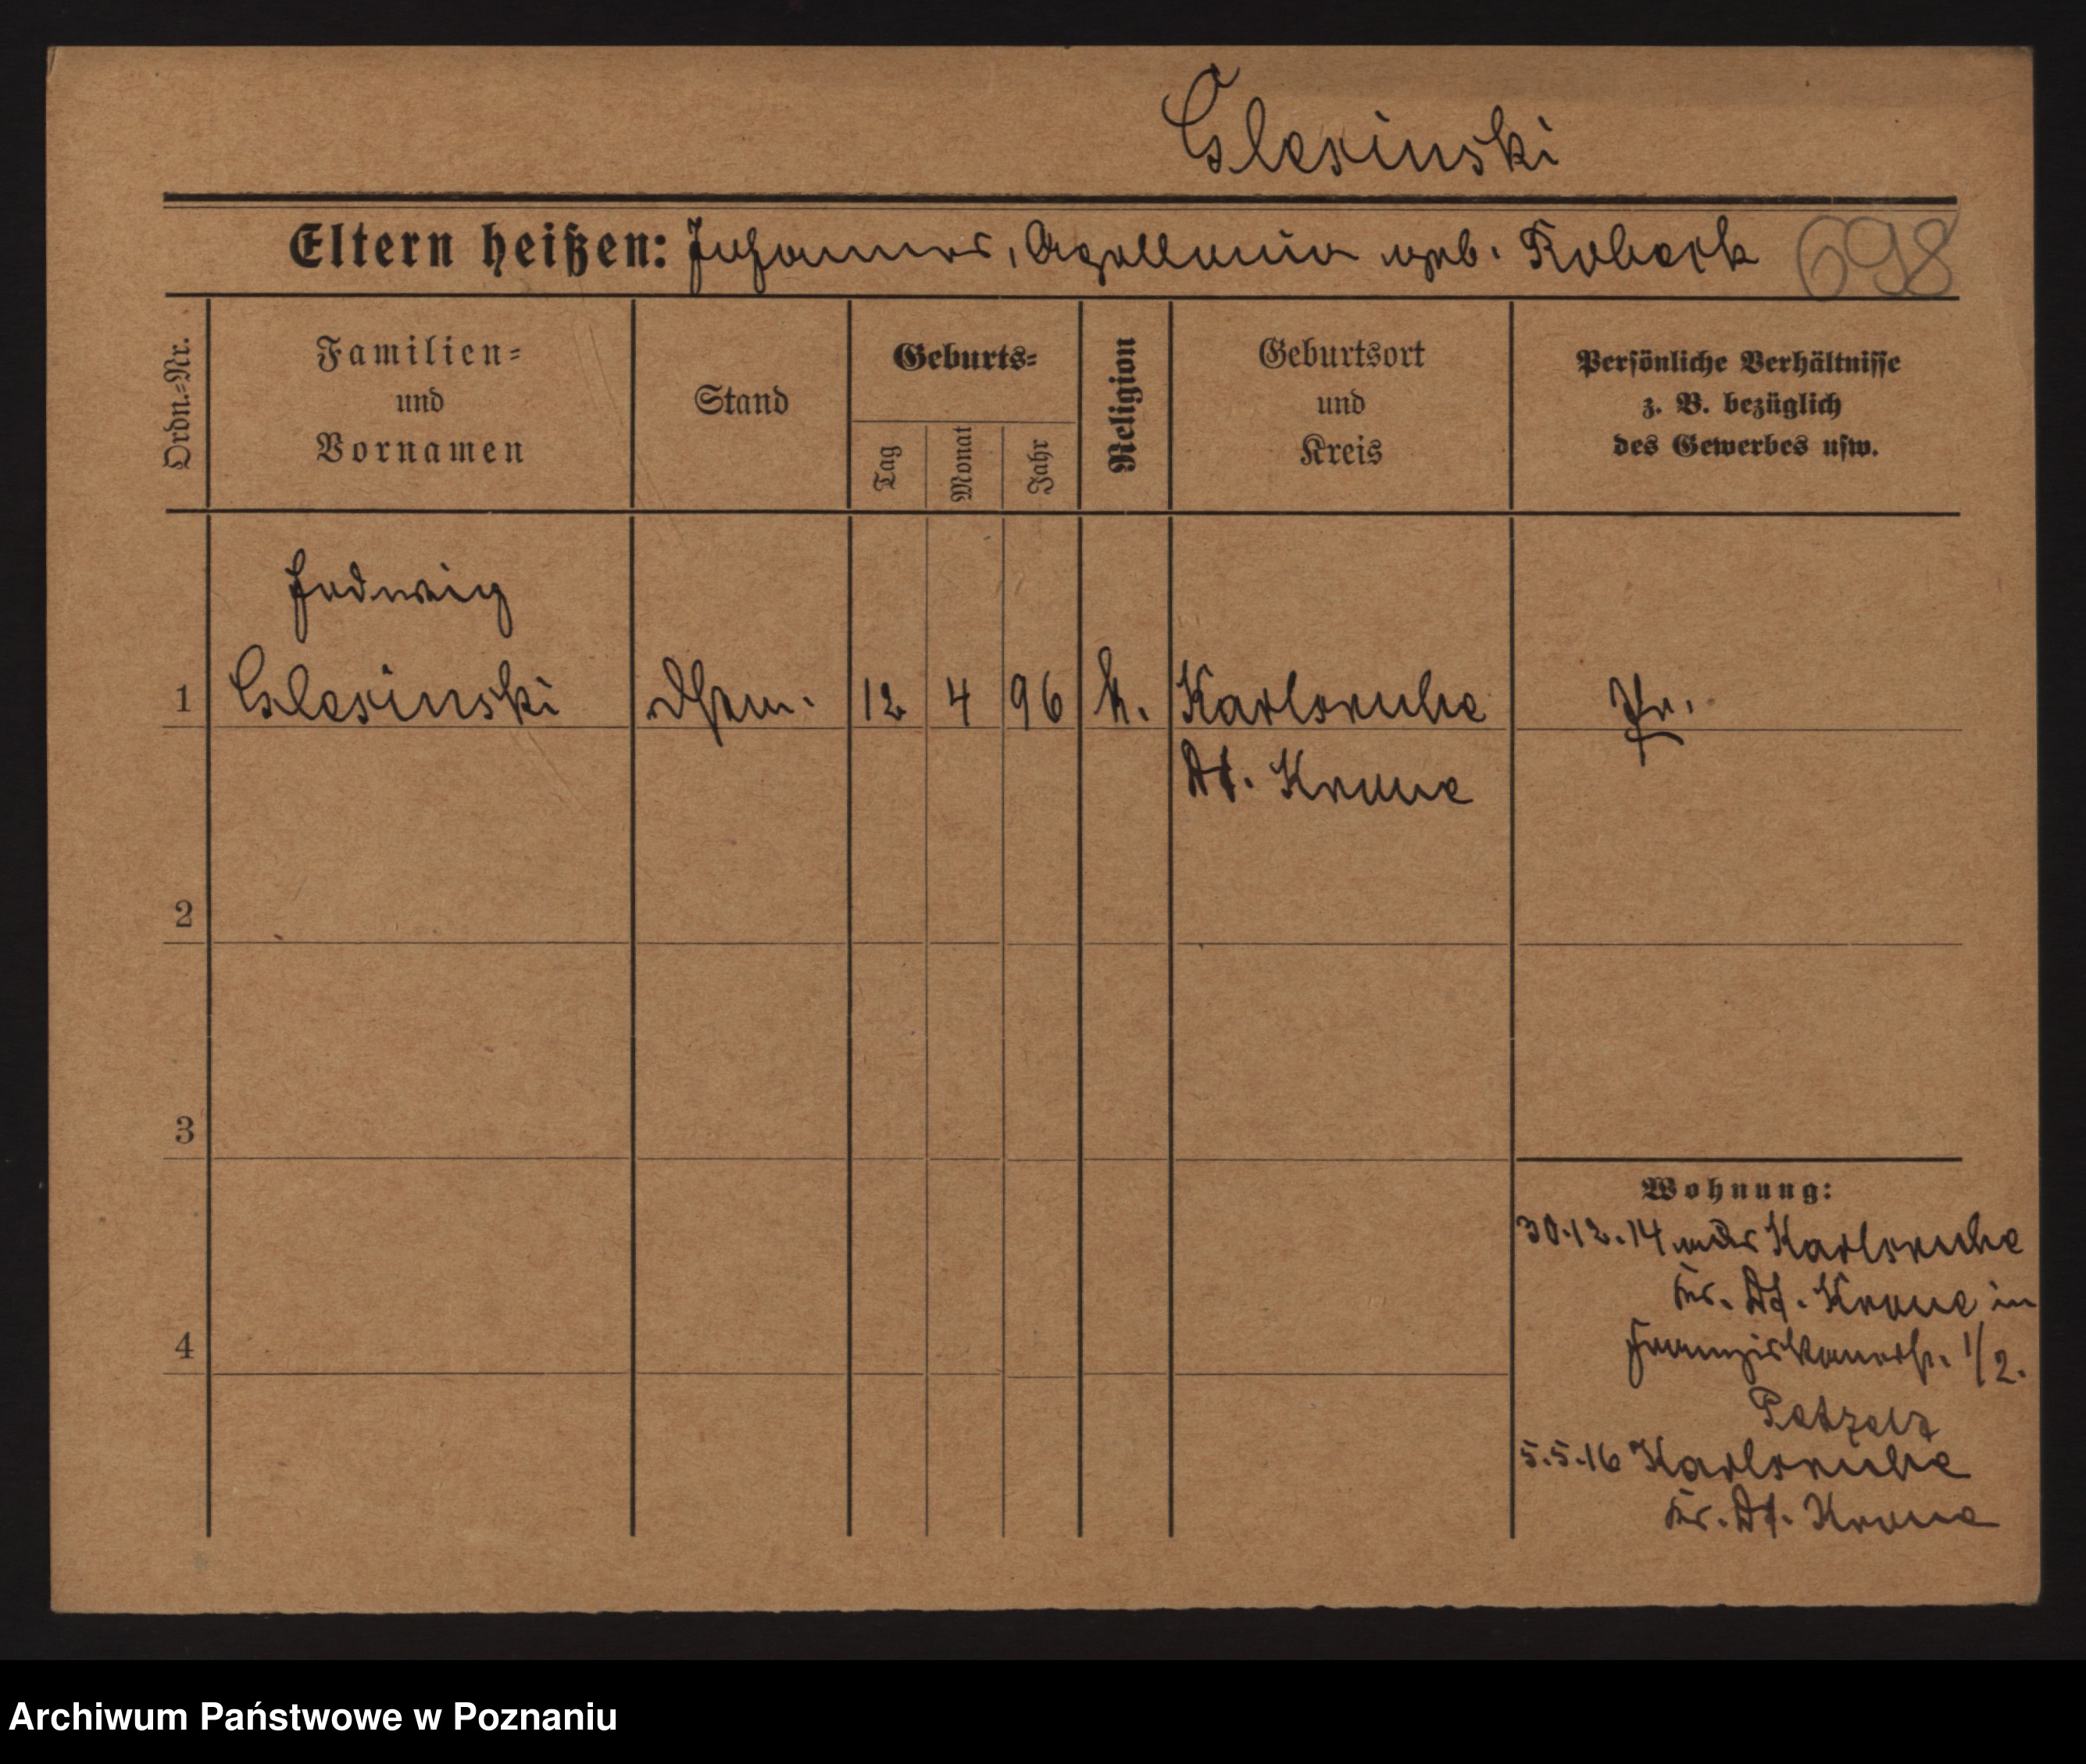 Glesinski
Eltern heißen: Johannes, Apollonia geb. Koback
698
Ordn.-Nr.
Familien-
und
Vornamen
Stand
Geburts-
Tag
Monat
Jahr
Religion
Geburtsort
und
Kreis
Persönliche Verhältnisse
z. B. bezüglich
des Gewerbes usw.
Hedwig
1 Glesinski 12 4 96 k. Karlsruhe Pr.
Dt. Krone
2
3
4
Wohnung:
30.12.14 aus Karlsruhe
Kr. Dt. Krone in
Franziskanerstr. 1/2.
5.5.16 Karlsruhe
Kr. Dt. Krone
Archiwum Państwowe w Poznaniu